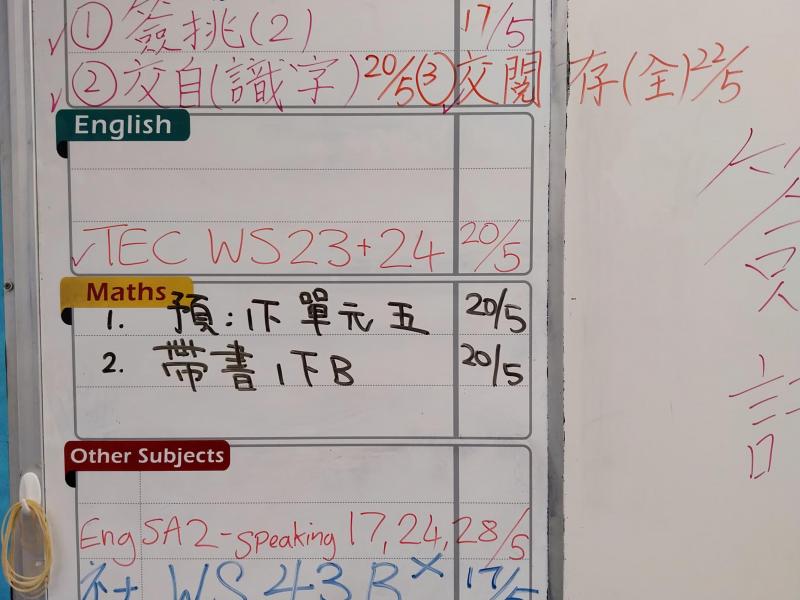 ✓① 簽挑(2) 17/5
✓② 交自(識字) 20/5 ③ ✓交閱 存(全) 22/5
English
✓TEC WS23+24 20/5
Maths
1. 預:1下單元五 20/5
2. 帶書1下B 20/5
Other Subjects
Eng SA2-speaking 17,24,28/5
WS 43B× 17/5